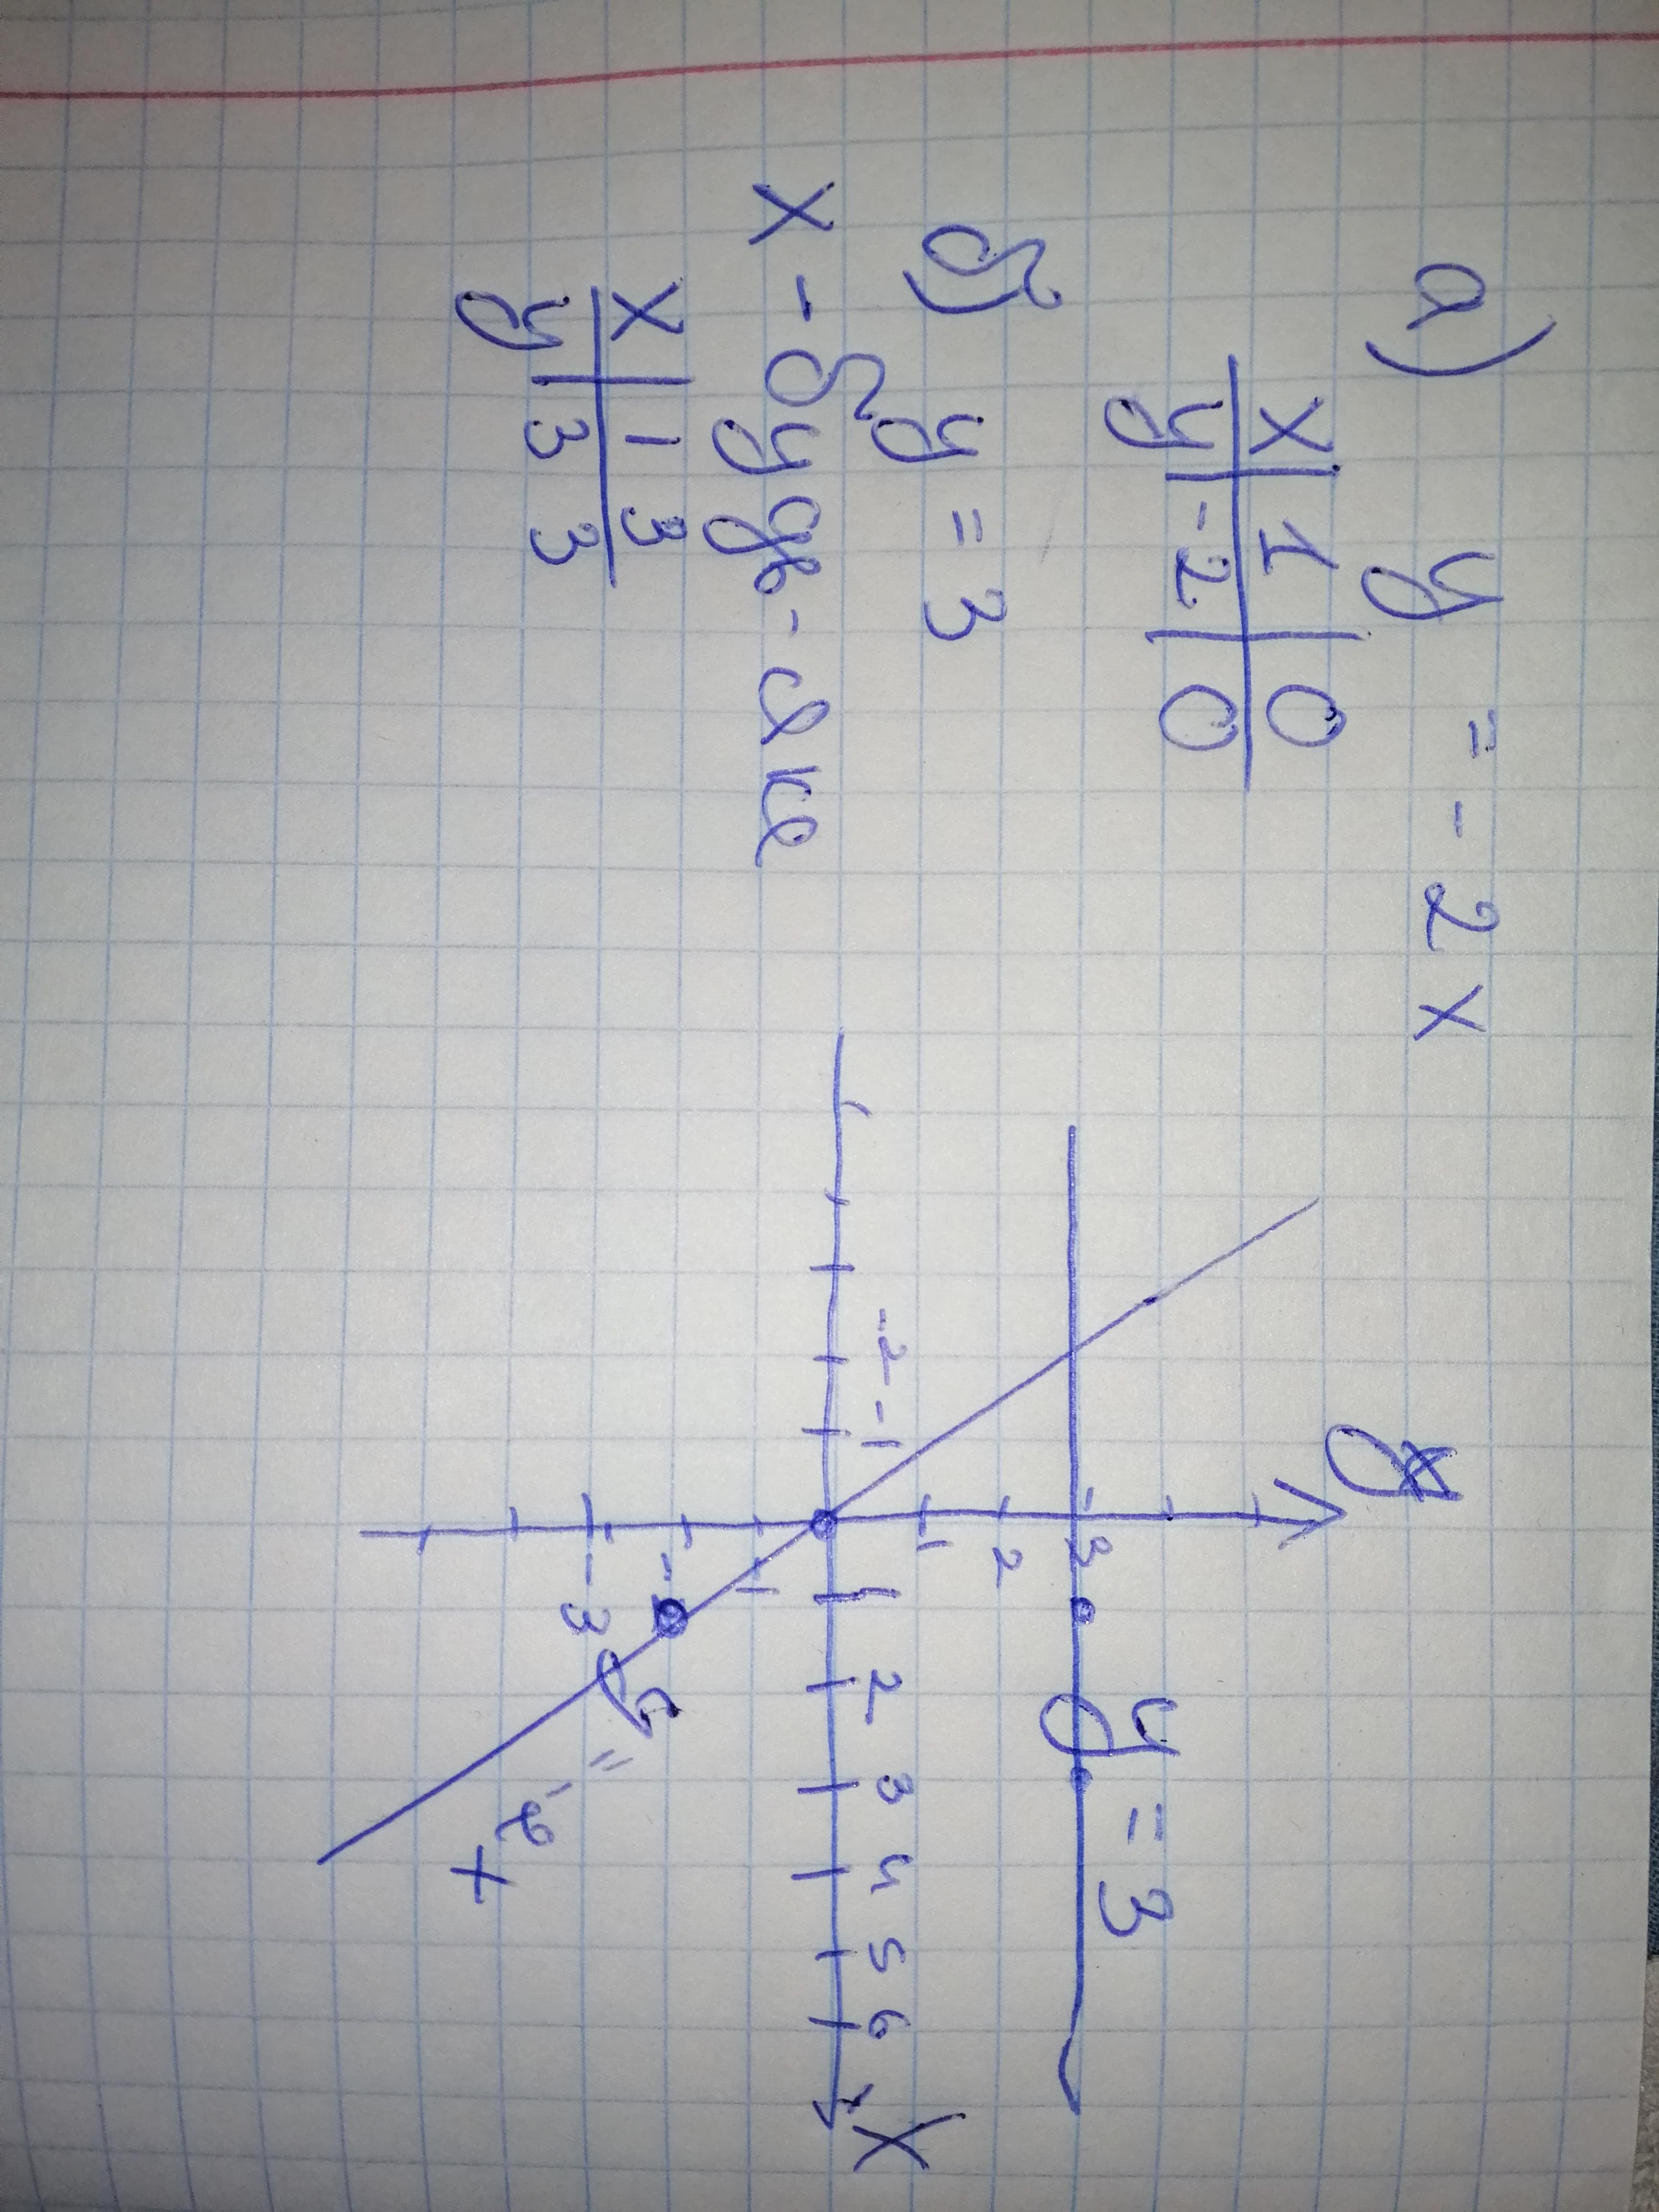 а) y = -2x
x | 1 | 0
y | -2 | 0
б) y = 3
x - будь-яке
x | 1 3
y | 3 3
y
3
2
1
-2 -1
1 2 3 4 5 6 x
-1
-2
-3
y = 3
y = -2x